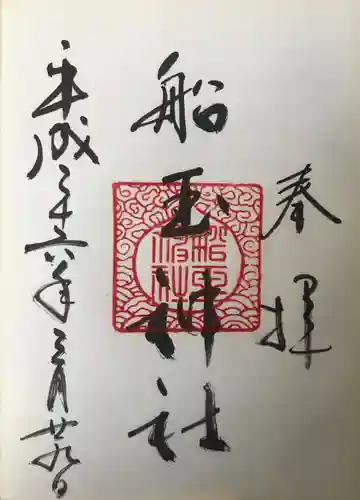 奉拝
船玉神社
平成二十六年三月廿九日